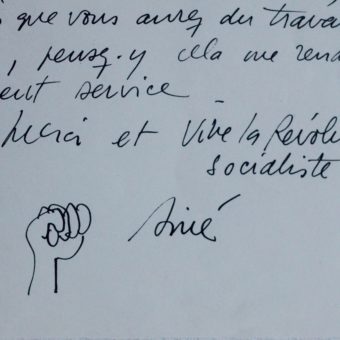 que vous aurez du trava
, pensez-y cela me rend
service
Merci et Vive la Révolu
socialiste
Siné